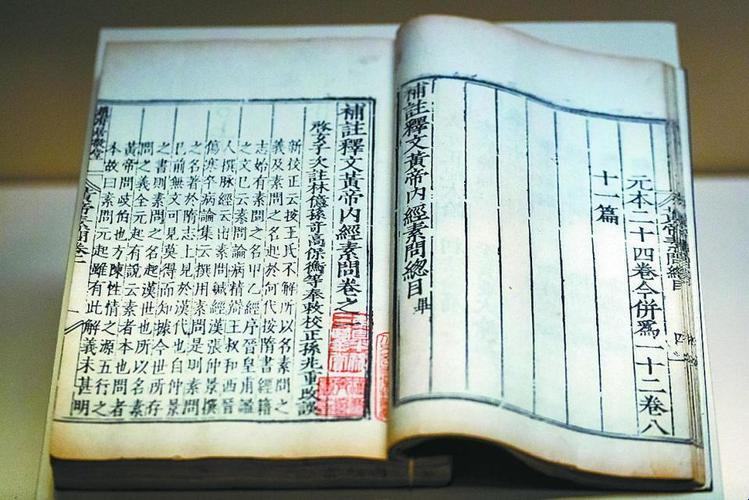 黃帝素問總目
四
元本二十四卷今併爲一十二卷八
十一篇
補註釋文黃帝內經素問總目畢
補註釋文黃帝內經素問卷之一
啓玄子次註林億孫奇高保衡等奉敕校正孫兆重改誤
新校正云按王氏不解所以名素問之
義及素問之名起於何代按隋書經籍
志始有素問之名甲乙經序晉皇甫謐
之文已云素問論病精辨王叔和西晉
人撰脉經云出素問鍼經漢張仲景撰
傷寒卒病論集云撰用素問是則素問
之名著於隋志上見於漢代也自仲景
已前無文可見莫得而知據今世所存
之書則素問之名起漢世也所以名素
問之義全元起有說云素者本也問者
黃帝問歧伯也方陳性情之源五行之
本故曰素問元起雖有此解義未甚明
趙府居敬堂
黃帝素問卷一